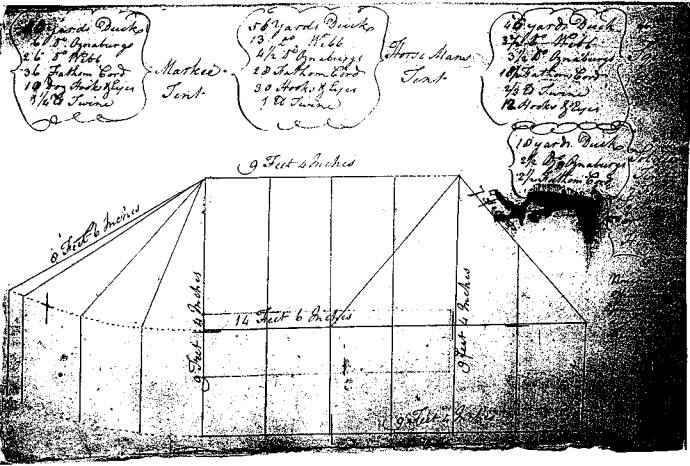 Yards Duck
6 Do Oznaburgs
26 Do Webb
36 Fathom Cord
10 Doz Hooks & Eyes
Twine
Markee
Tent
56 Yards Duck
13 Do Webb
4½ Do Oznaburgs
28 Fathom Cord
30 Hooks & Eyes
1 lb Twine
Horse Mans
Tent
46 yards Duck
Do Webb
3½ Do Oznaburgs
18½ Fathom Cord
lb Twine
12 Hooks & Eyes
18 yards Duck
2½ Do Oznaburgs
2½ Fathom Cord
9 Feet 4 Inches
8 Feet 6 Inches
14 Feet 6 Inches
9 Feet 4 Inches
9 Feet 4 Inches
9 Feet 4